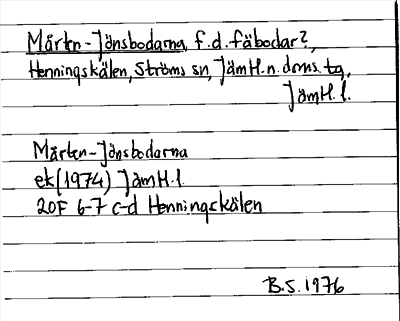 Mårten-Jönsbodarna, f.d. fäbodar?,
Henningskälen, Ströms sn, Jämtl. n. doms. tg,
Jämtl. l.
Mårten-Jönsbodarna
ek (1974) Jämtl. l.
20F 6-7 c-d Henningskälen
B.S. 1976